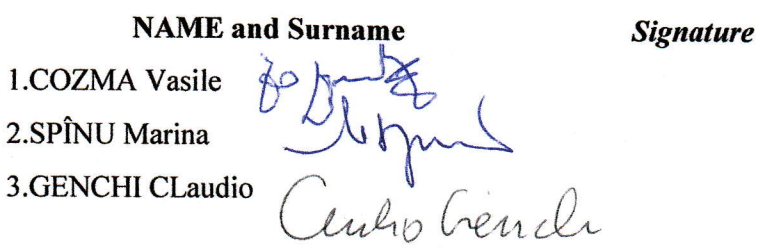 NAME and Surname Signature
1.COZMA Vasile
2.SPÎNU Marina
3.GENCHI CLaudio
Claudio Genchi